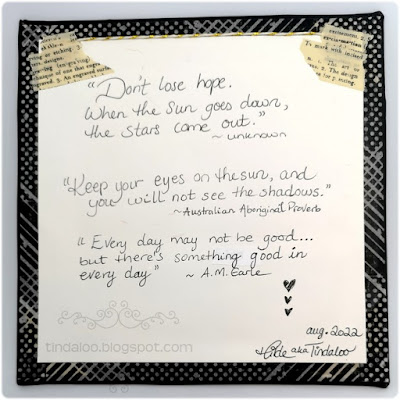 "Don't lose hope.
When the sun goes down,
the stars come out."
~ unknown
"Keep your eyes on the sun, and
you will not see the shadows."
~Australian Aboriginal Proverb
"Every day may not be good...
but there's something good in
every day" ~ A.M. Earle
aug. 2022
aka Tindaloo
tindaloo.blogspot.com